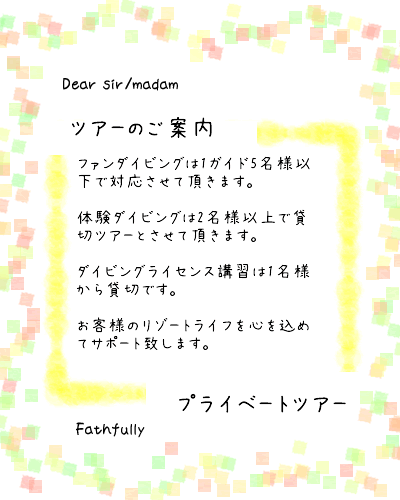 Dear sir/madam
ツアーのご案内
ファンダイビングは1ガイド5名様以
下で対応させて頂きます。
体験ダイビングは2名様以上で貸
切ツアーとさせて頂きます。
ダイビングライセンス講習は1名様
から貸切です。
お客様のリゾートライフを心を込め
てサポート致します。
プライベートツアー
Fathfully